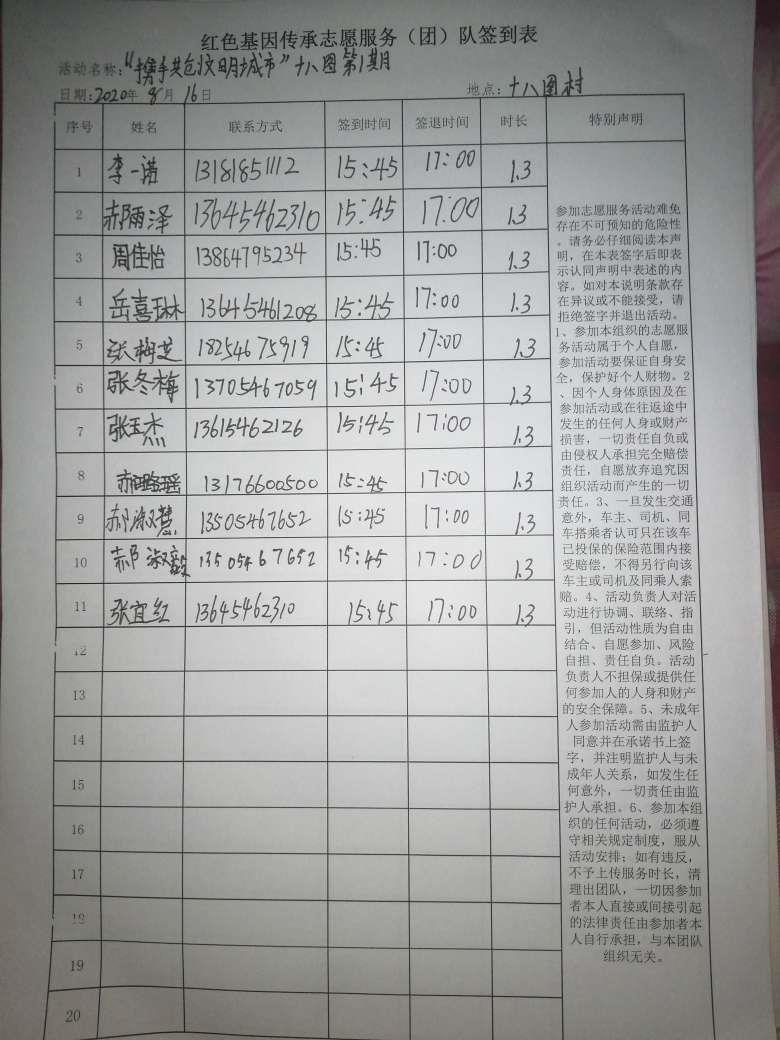 红色基因传承志愿服务（团）队签到表
活动名称："携手共创文明城市"十八图第1期
日期：2020年8月16日 地点：十八图村
序号 姓名 联系方式 签到时间 签退时间 时长 特别声明
1 李一诺 13181851112 15:45 17:00 1.3
2 郝雨泽 13645462310 15:45 17:00 1.3
3 周佳怡 13864795234 15:45 17:00 1.3
4 岳喜琳 13645461208 15:45 17:00 1.3
5 张梅芝 18254675919 15:45 17:00 1.3
6 张冬梅 13705467059 15:45 17:00 1.3
7 张玉杰 13615462126 15:45 17:00 1.3
8 郝璐瑶 13176600500 15:45 17:00 1.3
9 郝淑慧 13505467652 15:45 17:00 1.3
10 郝淑毅 13505467652 15:45 17:00 1.3
11 张宜红 13645462310 15:45 17:00 1.3
12
13
14
15
16
17
18
19
20
参加志愿服务活动难免
存在不可预知的危险性
。请务必仔细阅读本声
明，在本表签字后即表
示认同声明中表述的内
容。如对本说明条款存
在异议或不能接受，请
拒绝签字并退出活动。
1、参加本组织的志愿服
务活动属于个人自愿，
参加活动要保证自身安
全，保护好个人财物。2
、因个人身体原因及在
参加活动或在往返途中
发生的任何人身或财产
损害，一切责任自负或
由侵权人承担完全赔偿
责任，自愿放弃追究因
组织活动而产生的一切
责任。3、一旦发生交通
意外，车主、司机、同
车搭乘者认可只在该车
已投保的保险范围内接
受赔偿，不得另行向该
车主或司机及同乘人索
赔。4、活动负责人对活
动进行协调、联络、指
引，但活动性质为自由
结合、自愿参加、风险
自担、责任自负。活动
负责人不担保或提供任
何参加人的人身和财产
的安全保障。5、未成年
人参加活动需由监护人
同意并在承诺书上签
字，并注明监护人与未
成年人关系，如发生任
何意外，一切责任由监
护人承担。6、参加本组
织的任何活动，必须遵
守相关规定制度，服从
活动安排；如有违反，
不予上传服务时长，清
理出团队，一切因参加
者本人直接或间接引起
的法律责任由参加者本
人自行承担，与本团队
组织无关。